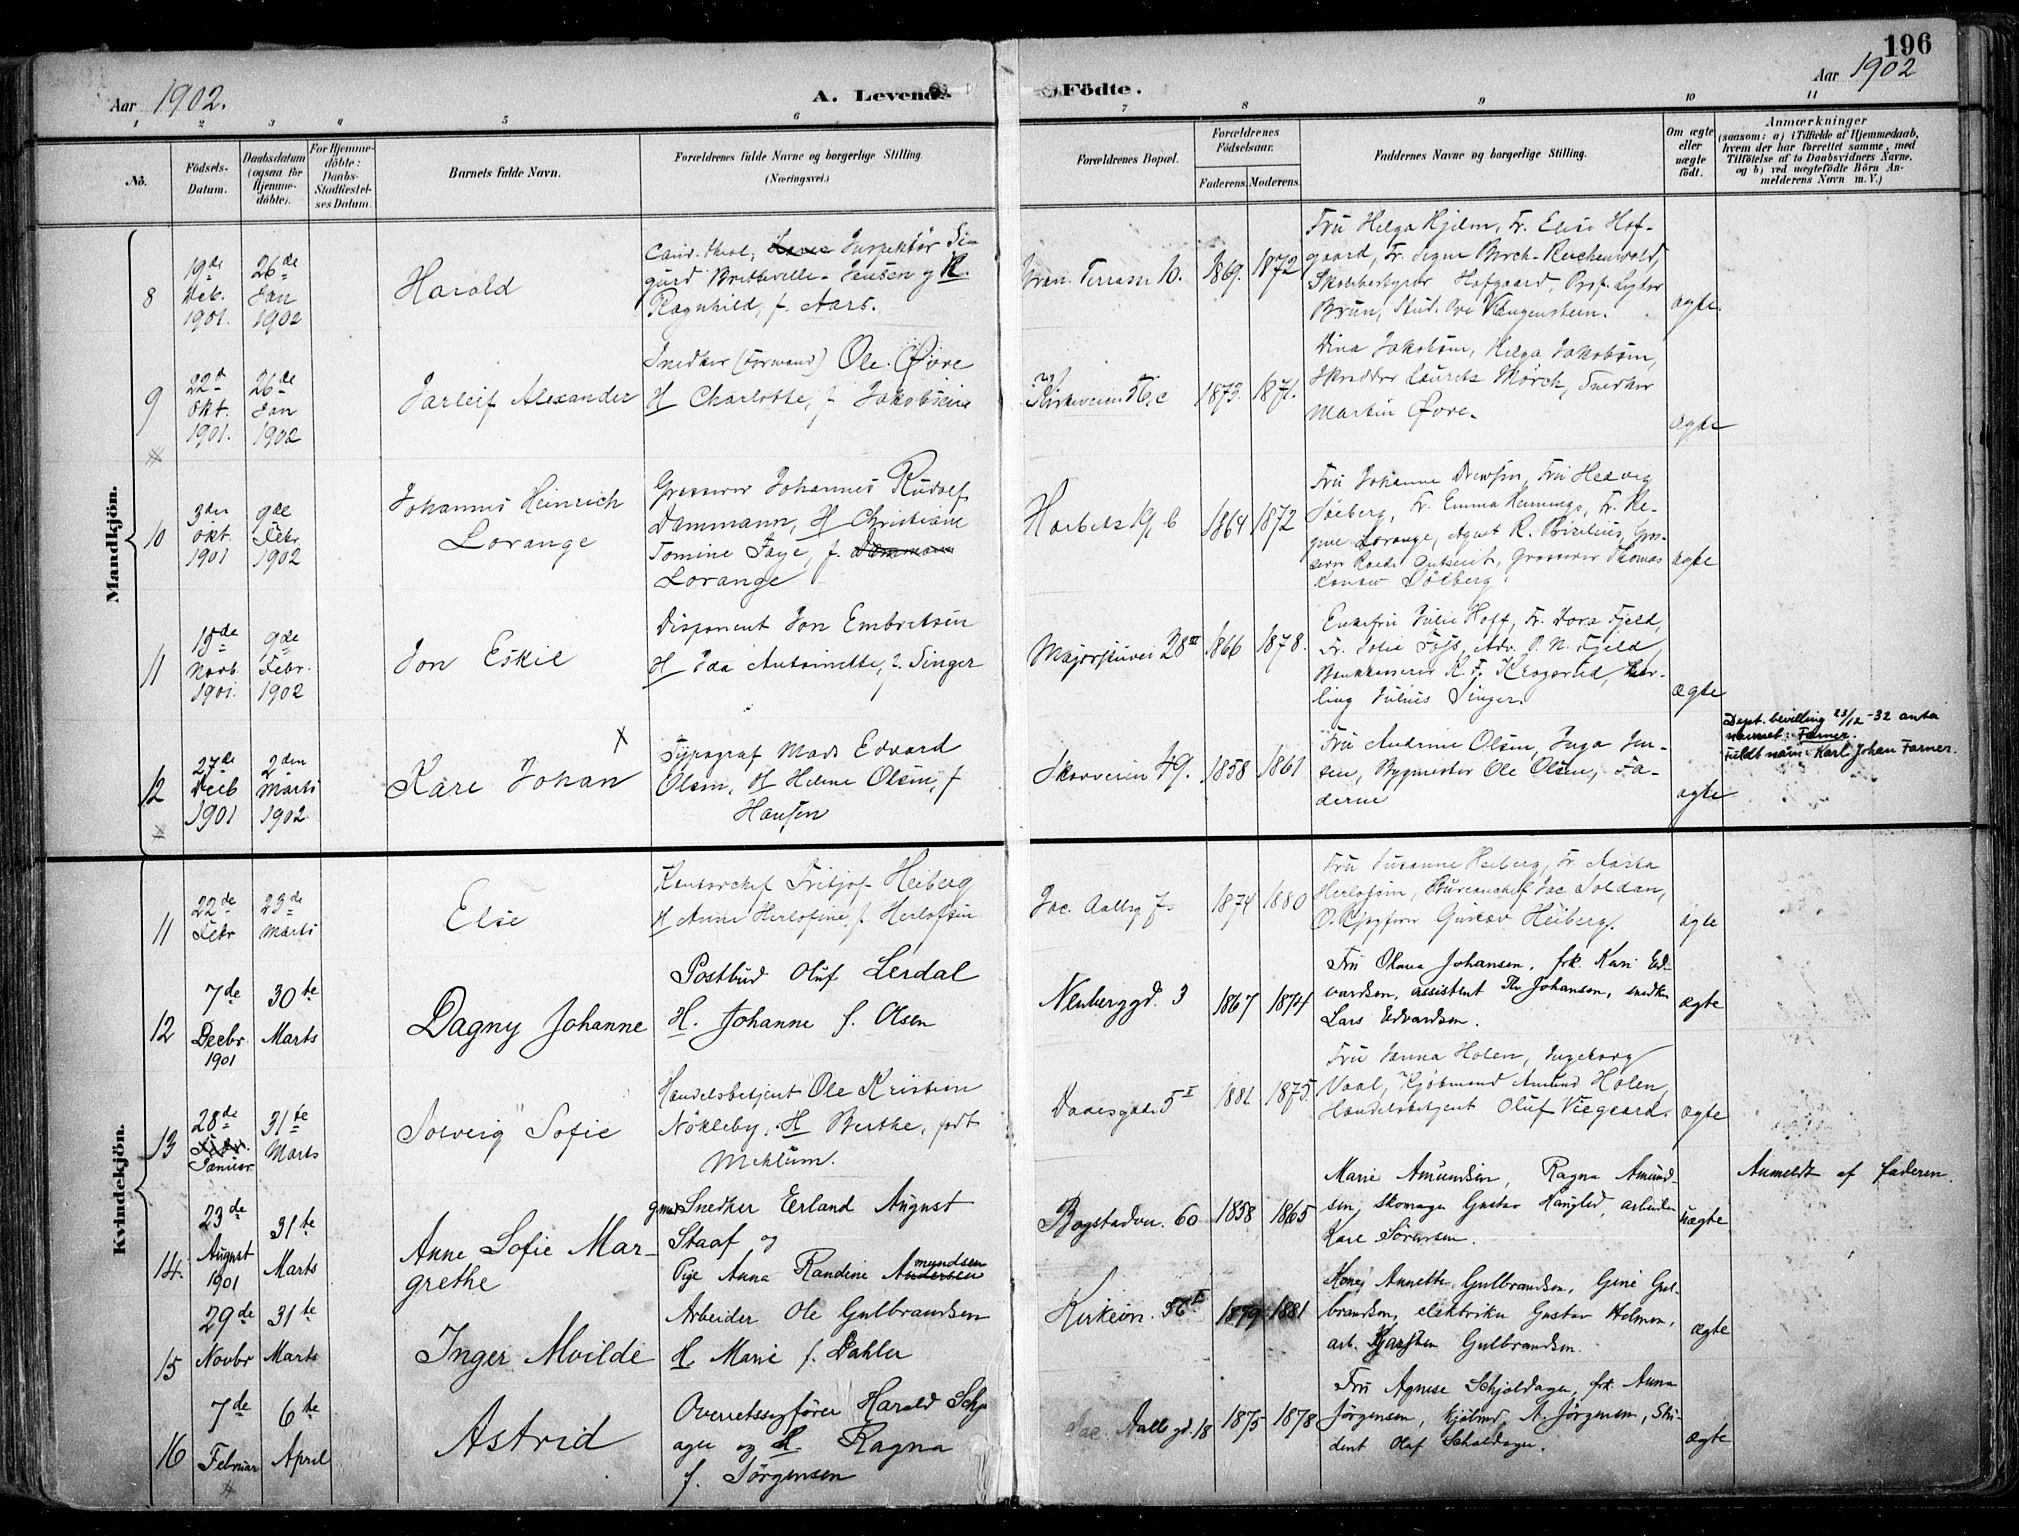 196
Aar 1902.
A. Levende Födte.
Aar 1902
1 2 3 4 5 6 7 8 9 10 11
No.
Födsels-Datum.
Daabsdatum (ogsaa for Hjemmedöbte).
For Hjemmedöbte: Daabs-Stadfæstelses Datum.
Barnets fulde Navn.
Forældrenes fulde Navne og borgerlige Stilling. (Næringsvei.)
Forældrenes Bopæl.
Forældrenes Födselsaar.
Faderens. Moderens.
Faddernes Navne og borgerlige Stilling.
Om ægte eller uægte födt.
Anmærkninger
(saasom: a) i Tilfælde af Hjemmedaab,
hvem der har forrettet samme, med
Tilföielse af to Daabsvidners Navne,
og b) ved uægtefödte Börn Anmelderens Navn m. V.)
Mandkjön.
8
19de Deb. 1901.
26de Jan 1902
Harald
Cand. theol, Inspektör Si
gurd Bretteville-Jensen g H.
Ragnhild, f. Aars.
Terrasse 10.
1869. 1872
Fru Helga Hjelm, Fr. Elise Hof-
gaard, Fr. Signe Birch-Reichenwald,
Skolebestyrer Hofgaard, Prof. Lyder
Brun, Stud. Ove Vangensteen.
ægte.
9
22d Okt. 1901.
26de Jan 1902
Jarleif Alexander
Snedker (Formand) Ole Øvre
H Charlotte, f. Jakobsen
Kirkeveien 56,c
1873. 1871.
Dina Jakobsen, Helga Jakobsen,
Skrædder Laurits Mörch, Snedker
Martin Øvre.
ægte
10
3die Okt. 1901
9de Febr 1902
Johannes Heinrich
Lorange
Grosserer Johannes Rudolf
Dammann, H Christiane
Tomine Faye, f. Dammann
Lorange
Harbitz 19, b
1864 1872
Fru Johanne Drewsen, Fru Hedvig
Söeberg, Fr. Emma Hennings, Fr. Re-
gine Lorange, Agent R. Sibelius, Gros-
serer Roede Gutzeit, Grosserer Thomas
Konow Döeberg
ægte
11
15de Novb. 1901.
9de Febr. 1902
Jon Eskil
Disponent Jon Embretsen
H Ida Antoinette, f. Singer
Majorstuvei 28 III
1866 1878.
Enkefru Julie Hoff, Fr. Dora Fjeld,
Fr. Sofie Foss, Adv. O. N. Fjeld,
Bankkasserer K. F. Krogsrud, Kær-
ling Julius Singer.
ægte
12
27de Decb 1901
2den Marts 1902
Kåre Johan
X
Typograf Mads Edvard
Olsen, H Helene Olsen, f
Hansen
Skovveien 49.
1858 1861
Fru Andrine Olsen, Inga Jen-
sen, Bygmester Ole Olsen, Fa-
deren
ægte
Dept. bevilling 23/12-32 anta
navnet: Farner.
Fuldt navn: Karl Johan Farner.
Kvindekjön.
11
22de Febr
23de Marts
Else
Kontorchef Fritjof Heiberg
H Anne Herlofine f. Herlofsen
Jac. Aallsg 7.
1874 1880
Fru Susanne Heiberg, Fr. Aasta
Herlofsen, Bureauchef Jac Soldan,
O.R.sagförer Gustav Heiberg.
ægte
12
7de Decbr 1901
30te Marts
Dagny Johanne
Postbud Oluf Lerdal
H. Johanne f. Olsen
Neuberggd. 3
1867 1874
Fru Olava Johansen, frk. Kari Ed-
vardsen, assistent Th. Johansen, snedker
Lars Edvardsen.
ægte
13
28de Januar
31te Marts
Solveig Sofie
Handelsbetjent Ole Kristian
Nökleby, H Berthe, född
Mehlum.
Daaesgade 5 I
1881 1875.
Fru Janna Holen, Ingeborg
Vaal, Kjöbmand Amund Holen,
Handelsbetjent Oluf Viegaard.
ægte
14.
23de August 1901
31te Marts
Anne Sofie Mar-
grethe
gmd Snedker Erland August
Staaf og
Pige Anna Randine Andersen mundsen
Bogstadvn. 60
1858 1865
Marie Amundsen, Ragna Amund-
sen, skomager Gustav Hanglid, arbeider
Kare Sörensen.
uægte
Anmeldt af faderen.
15
29de Novbr
31te Marts
Inger Alvilde
Arbeider Ole Gulbrandsen
H. Marie f. Dahler
Kirkevn. 56 II
1879 1881
Kone Annette Gulbrandsen, Gine Gul-
brandsen, elektriker Gustav Helmen,
arb. Karsten Gulbrandsen.
ægte
16
7de Februar
6te April
Astrid
Overretssagförer Harald Schjold
ager og H. Ragna
f. Jörgensen
Jac. Aalls gd. 18
1875 1878
Fru Agnese Schjoldager, frk. Anna
Jörgensen, kjöbmd. A. Jörgensen, Stu-
dent Olaf Schjoldager.
ægte